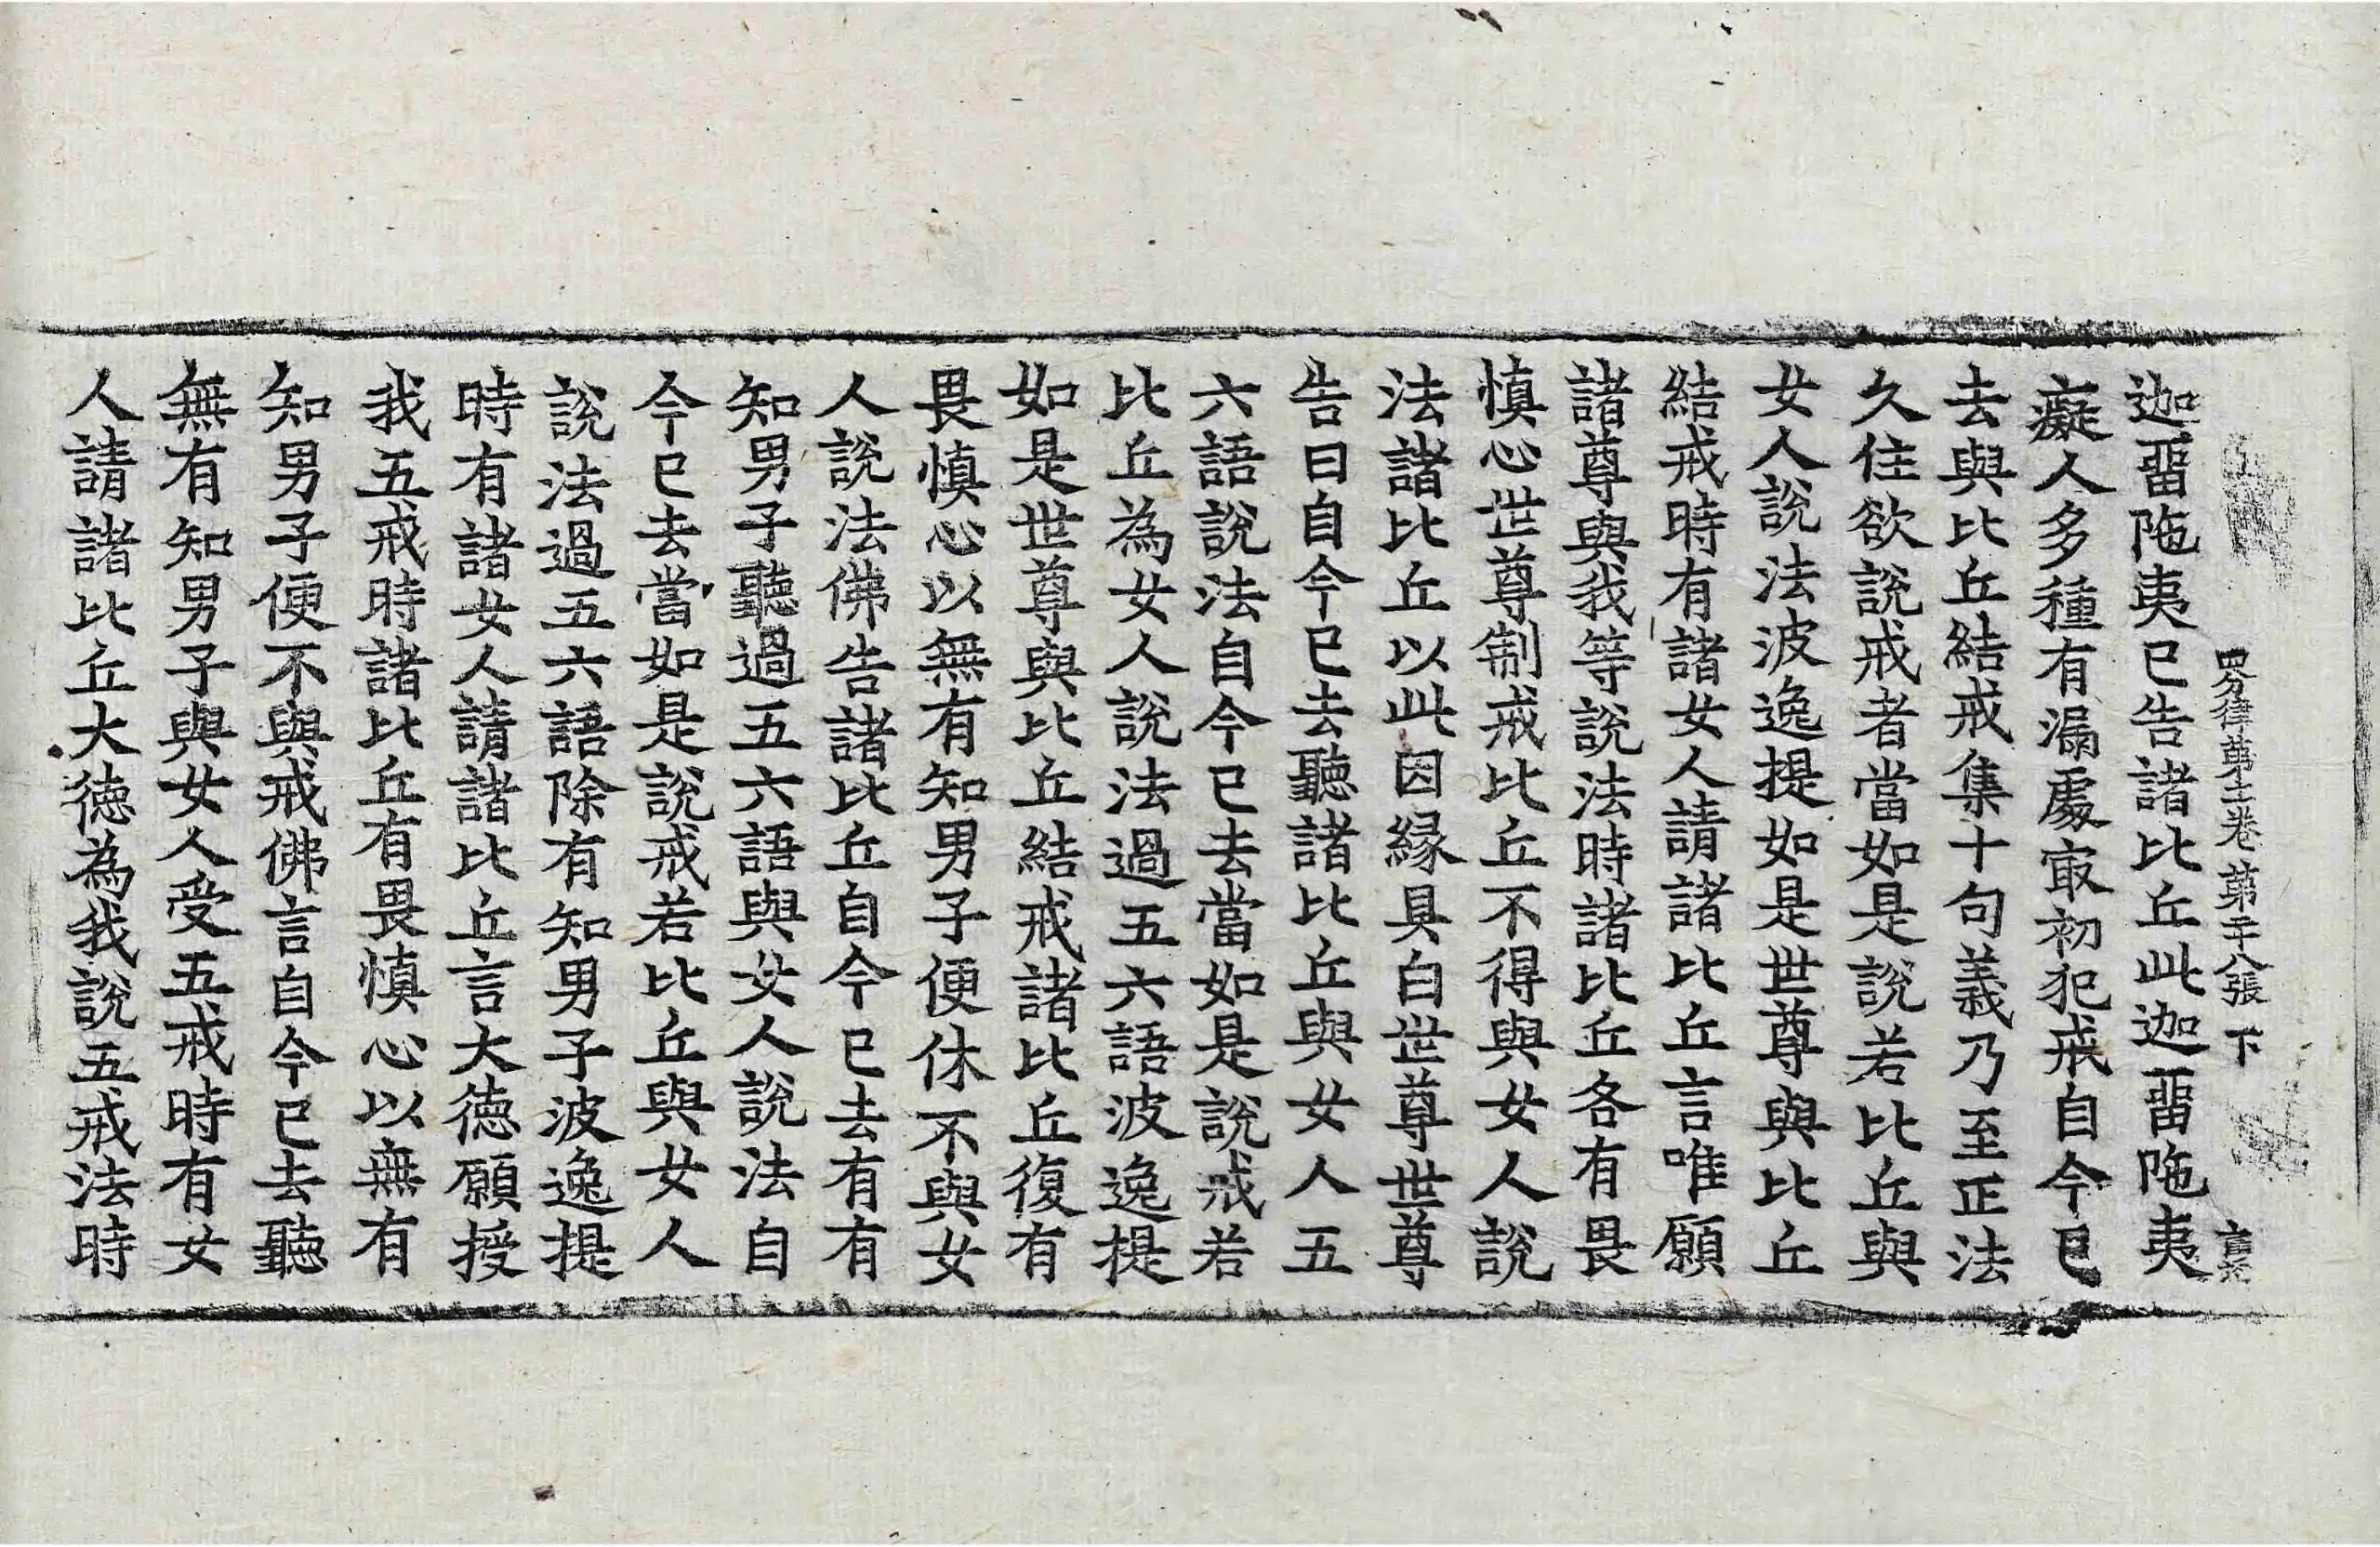 四分律第十一卷 第二十八張 下
迦畱陁夷已告諸比丘此迦畱陁夷
癡人多種有漏處㝡初犯戒自今已
去與比丘結戒集十句義乃至正法
久住欲說戒者當如是說若比丘與
女人說法波逸提如是世尊與比丘
結戒時有諸女人請諸比丘言唯願
諸尊與我等說法時諸比丘各有畏
慎心世尊制戒比丘不得與女人說
法諸比丘以此因縁具白世尊世尊
告曰自今已去聽諸比丘與女人五
六語說法自今已去當如是說戒若
比丘為女人說法過五六語波逸提
如是世尊與比丘結戒諸比丘復有
畏慎心以無有知男子便休不與女
人說法佛告諸比丘自今已去有有
知男子聽過五六語與女人說法自
今已去當如是說戒若比丘與女人
說法過五六語除有知男子波逸提
時有諸女人請諸比丘言大徳願授
我五戒時諸比丘有畏慎心以無有
知男子便不與戒佛言自今已去聽
無有知男子與女人受五戒時有女
人請諸比丘大徳為我說五戒法時